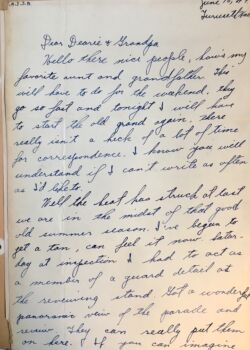 June 10, 19
Dior Dearie & Grandpa
Hello there nice people, how's my
favorite aunt and grandfather. This
will have to do for the weekend, they
go so fast and tonight I will have
to start the old grind again, there
really isn't a heck of a lot of time
for correspondence. I know you will
understand if I can't write as often
as I'd like to.
Well the heat has struck at last
we are in the midst of that good
old summer season. I've begun to
get a tan, can feel it now. Satur-
day at inspection I had to act as
a member of a guard detail at
the reviewing stand. Got a wonderful
panoramic view of the parade and
review. They can really put them
on here. If you can imagine